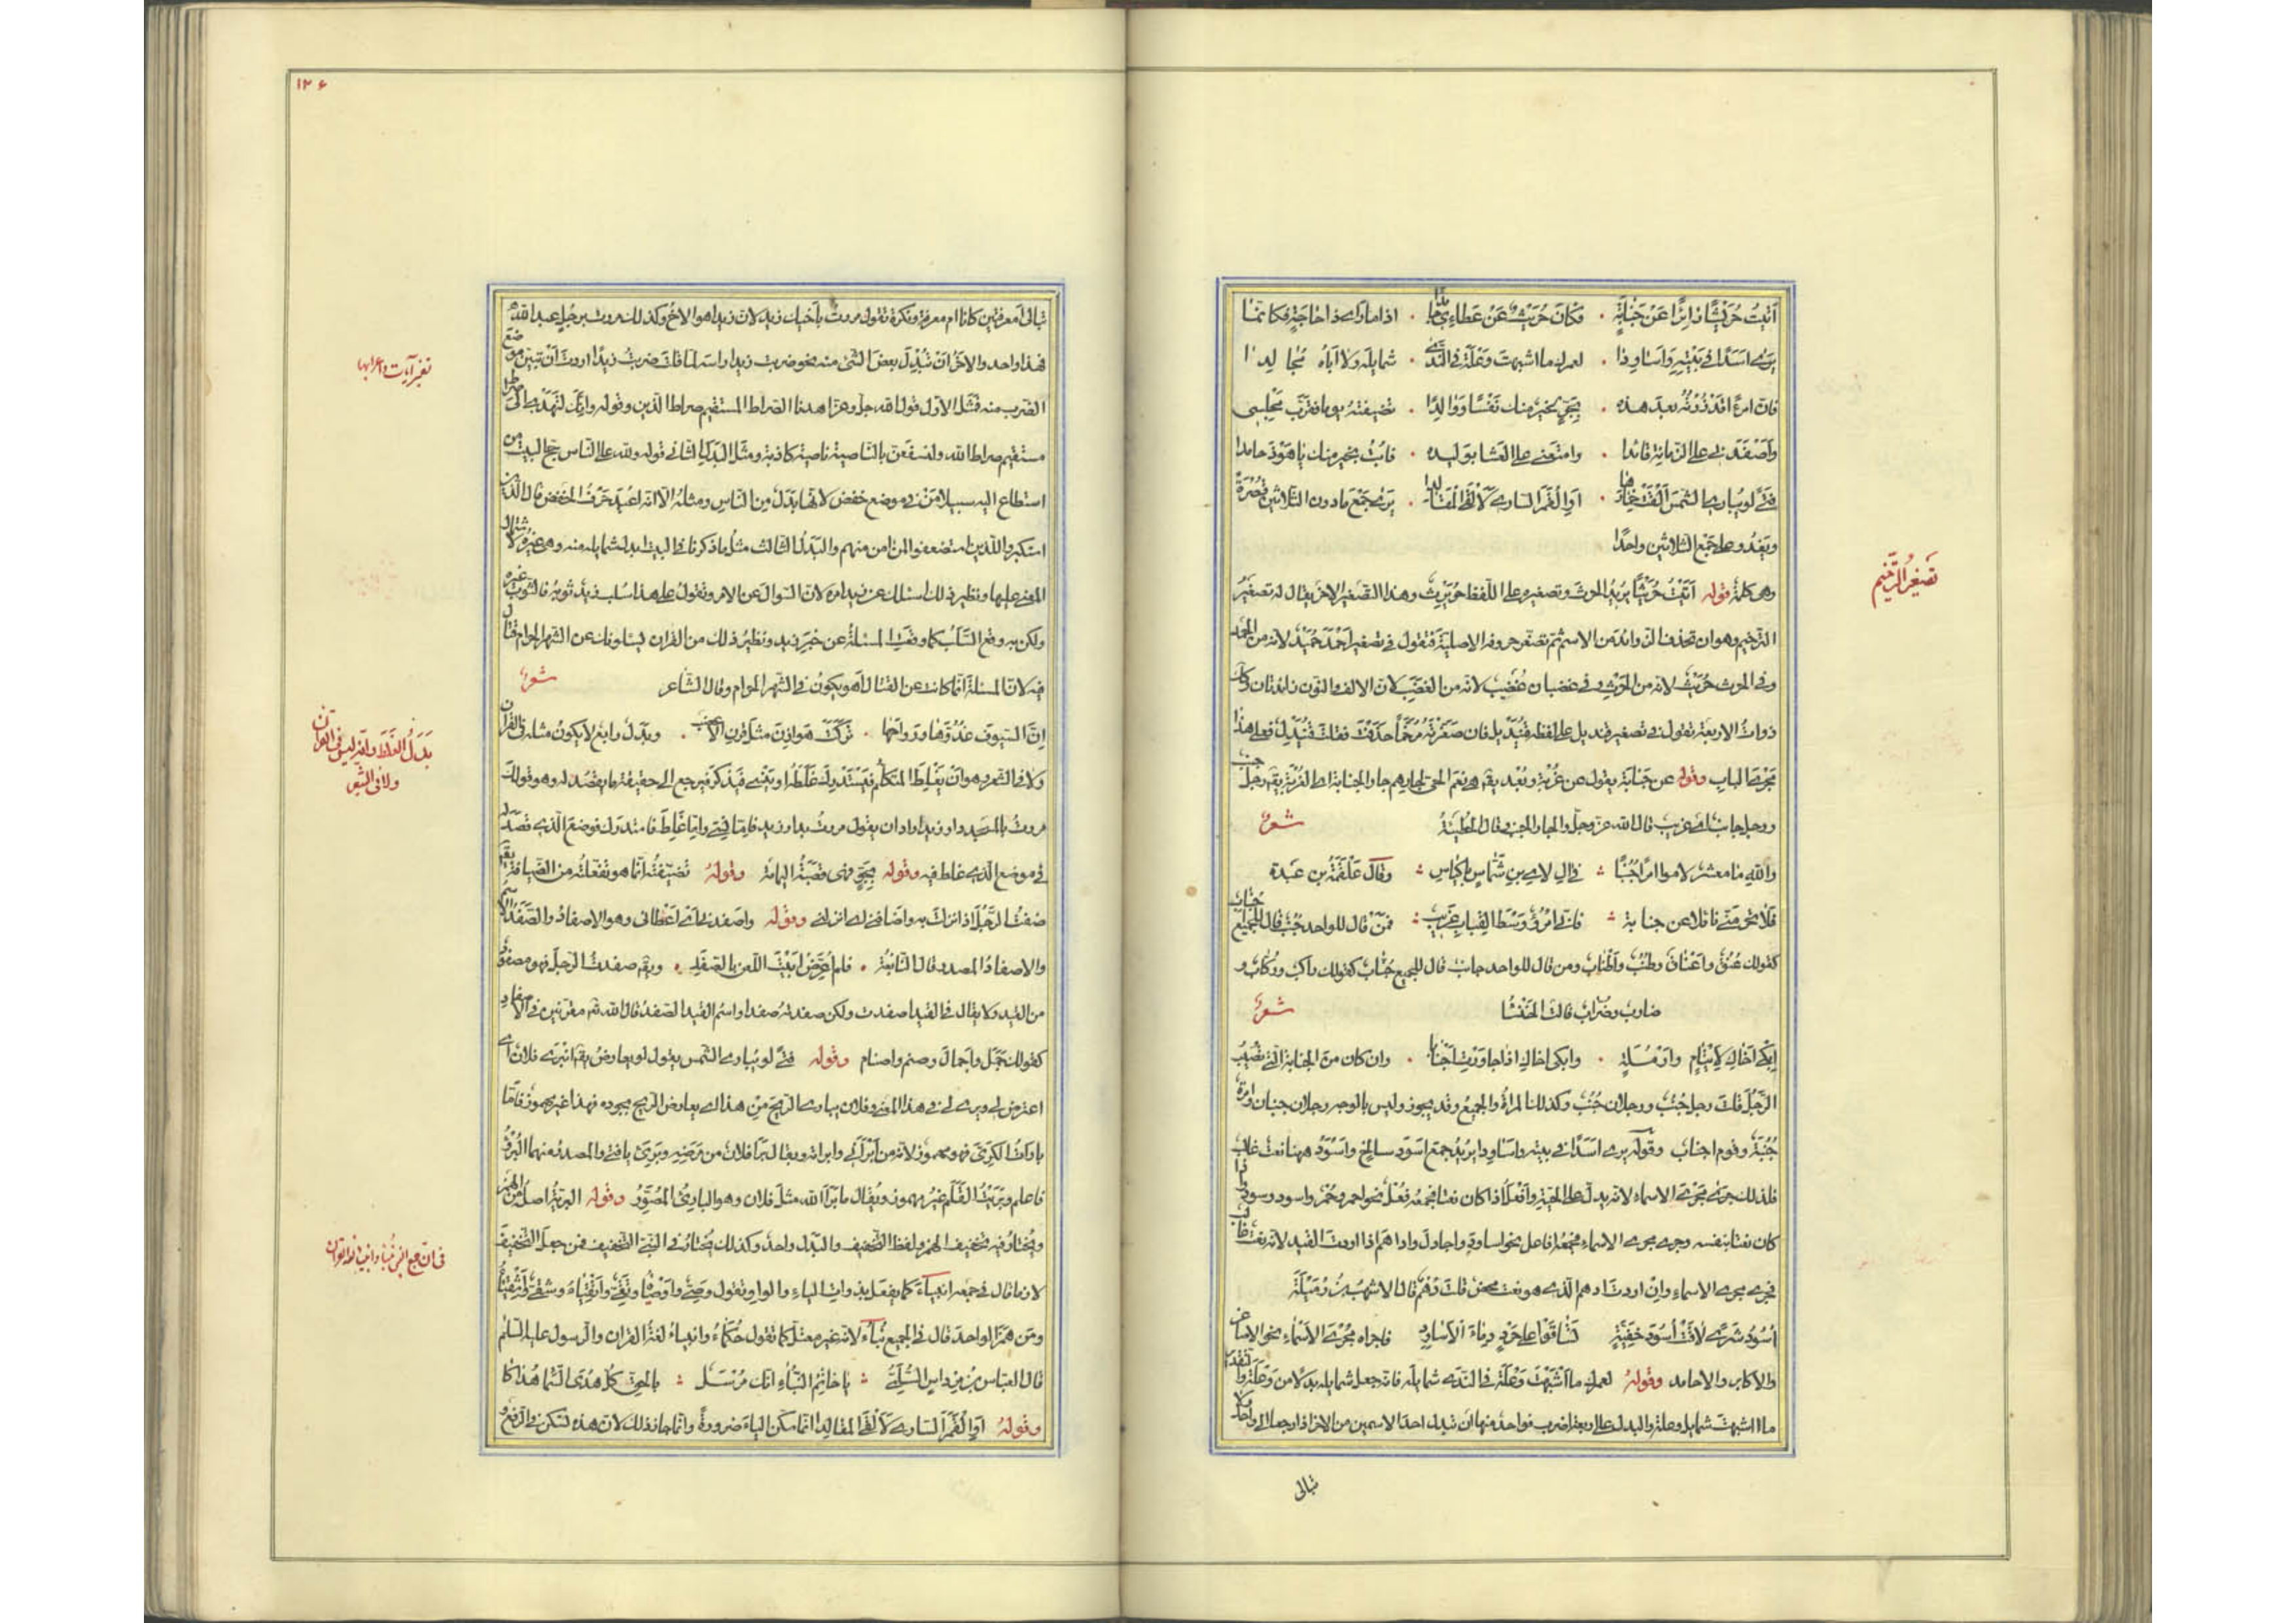 أتيت حريثا زائرا عن جنابة . فكان حريث عن عطائي جامدا . اذا ما رأى ذا حاجة فكانما
يرى اسدا في بيته وأساودا . لعمرك ما اشبهت وعلة في الندى . شمايله ولا اباه مجالدا
وأصفدني على الزمانة قائدا . وامتعني على العشا بوليدة . فابت بخير منك يا هوذ حامدا
فتى لو يباري الشمس ألقت قناعها . أو القمر الساري لألقى المقالدا . يرى جمع ما دون الثلاثين قصرة
ويغدو على جمع الثلاثين واحدا
قوله أتيت حريثا يريد الحرث وتصغيره على اللفظ حويرث وهذا التصغير الاخر يقال له تصغير
الترخيم وهو ان تحذف الزوائد من الاسم ثم تصغر حروفه الاصلية فتقول في تصغير احمد حميد لانه من الحمد
وفي الحرث حريث لانه من الحرث وفي غضبان غضيب لانه من الغضب لان الالف والنون زائدتان وكذلك
ذوات الاربعة تقول في تصغير قنديل على لفظه قنيديل فان صغرته مرخما حذفت فقلت قنيدل فعلى هذا
مجرى الباب وقوله عن جنابة يقول عن غربة وبعد يقال هم نعم الحي لجارهم جار الجنابة اي الغربة يقال رجل جنب
ورجل جانب اي غريب قال الله عز وجل والجار الجنب وقال الحطيئة شعر
والله ما معشر لاموا امرأ جنبا : في آل لاي بن شماس باكياس : وقال علقمة بن عبدة
فلا تحرمني نائلا عن جنابة : فاني امرؤ وسط القباب غريب : فمن قال للواحد جنب قال للجميع اجناب
كقولك عنق واعناق وطنب وأطناب ومن قال للواحد جانب قال للجميع جناب كقولك راكب وركاب و
ضارب وضراب قالت الخنسا شعر
ابكي اخاك لايتام وارملة . وابكي اخاك اذا جاورت أجنابا . وان كان من الجنابة التي تصيب
الرجل قلت رجل جنب ورجلان جنب وكذلك المرأة والجميع وقد يجوز وليس بالوجه رجلان جنبان وامرأة
جنبة وقوم اجناب وقوله يرى اسدا في بيته واساودا يريد جمع اسود سالخ واسود ههنا نعت غالب
فلذلك جرى مجرى الاسماء لانه يدل على الحية وأفعل اذا كان نعتا فجمعه فعل نحو احمر وحمر واسود وسود
كان نعتا بنفسه وجرى مجرى الاسماء فجمعه افاعل نحو اساود واجادل واداهم اذا اردت القيد لانه نعت غالب
فجرى مجرى الاسماء وان اردت ادهم الذي هو نعت محض قلت دهم قال الاشهب بن رميلة
أسود شرى لاقت أسود خفية تساقوا على حرد دماء الأساود فاجراه مجرى الأسماء نحو الاصاغر
والاكابر والاحامد وقوله لعمرك ما أشبهت وعلة في الندى شمايله فانه جعل شمايله بدلا من وعلة والتقدير
ما اشبهت شمايل وعلة والبدل على اربعة اضرب فواحد منها ان تبدل احد الاسمين من الاخر اذا رجعا الى واحد
تبالى
تصغير الترخيم
١٢٦
تبالى أمعرفتين كانا ام معرفة ونكرة تقول مررت بأخيك زيد لان زيدا هو الاخ وكذلك مررت برجل عبد الله
فهذا واحد والاخر أن تبدل بعض الشيء منه نحو ضربت زيدا راسه لما قلت ضربت زيدا اردت أن تبين موضع
الضرب منه فمثل الاول قول الله جل وعز اهدنا الصراط المستقيم صراط الذين وقوله وانك لتهدي الى صراط
مستقيم صراط الله ولنسفعن بالناصية ناصية كاذبة ومثل البدل الثاني قوله ولله على الناس حج البيت من
استطاع اليه سبيلا من في موضع خفض لانها بدل من الناس ومثله الا انه اعيد حرف الخفض قال الذين
استكبروا للذين استضعفوا لمن امن منهم والبدل الثالث مثل ما ذكرنا في البيت ابدل شمايله منه وهي غيره لاشتمال
المعنى عليها ونظير ذلك اسئلك عن زيد امره لان السوال عن الامر وتقول على هذا سلب زيد ثوبه فالثوب غيره
ولكن به وقع السلب كما وقعت المسئلة عن خبر زيد ونظير ذلك من القران يسئلونك عن الشهر الحرام قتال
فيه لان المسئلة انما كانت عن القتال أهو يكون في الشهر الحرام وقال الشاعر شعر
ان السيوف غدوها ورواحها . تركت هوازن مثل قرن الاعضب . وبدل رابع لا يكون مثله في القرآن
ولا في الشعر وهو ان يغلط المتكلم فيستدرك غلطه او ينسى فيذكر فيرجع الى حقيقة ما يقصد له وهو قولك
مررت بالمسجد دار زيد اراد ان يقول مررت بدار زيد فاما نسي واما غلط فاستدرك فوضع الذي قصد له
في موضع الذي غلط فيه وقوله بجو فهي قصبة اليمامة وقوله تضيفته انما هو تفعلته من الضيافة يقال
ضفت الرجل اذا نزلت به واضافني اي انزلني وقوله واصفدني اي أعطاني وهو الاصفاد والصفد الاسم
والاصفاد المصدر قال النابغة . فلم أعرض ابيت اللعن بالصفد . ويقال صفدت الرجل فهو مصفود
من القيد ولا يقال في القيد اصفدت ولكن صفدته صفدا واسم القيد الصفد قال الله تعالى مقرنين في الاصفاد
كقولك جمل واجمال وصنم واصنام وقوله فتى لو يباري الشمس يقول لو يعارض يقال انبرى فلان اي
اعترض لي وبرى لي في هذا المعنى وفلان يباري الريح من هذا اي يعارض الريح بجوده فهذا غير مهموز فاما
بارأت الكري فهو مهموز لانه من أبرأني وابرأته ويقال برأ فلان من مرضه وبرئ يا فتى والمصدر منهما البرء
فاعلم وبريت القلم غير مهموز ويقال ما برأ الله مثل فلان وهو البارئ المصور وقوله البرية اصله من الهمز
ويختار فيه تخفيف الهمز ولفظ التخفيف والبدل واحد وكذلك يختار في النبي التخفيف فمن جعل التخفيف
لازما قال في جمعه انبياء كما يفعل بذوات الياء والواو وتقول وصي وأوصياء وتقي وأتقياء وشقي وأشقياء
ومن همز الواحد قال في الجميع نبآء لانه غير معتل كما تقول حكماء وانبياء لغة القران والرسول عليه السلم
قال العباس بن مرداس السلمي : يا خاتم النبآء انك مرسل : بالحق كل هدى السما هداكا
وقوله أو القمر الساري لألقى المقالدا انما سكن الياء ضرورة وانما جاز ذلك لان هذه تسكن في الرفع و
بدل الغلط وانه ليس في القرآن
ولا في الشعر